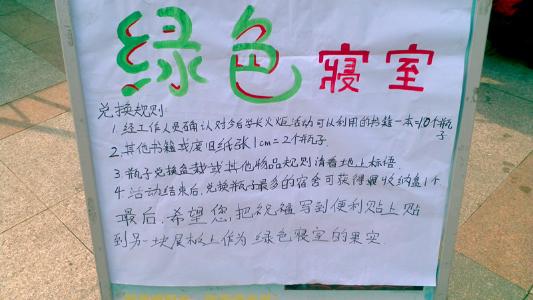 绿色寝室
兑换规则:
1.经工作人员确认对今后学长火炬活动可以利用的书籍一本=10个瓶子
2.其他书籍或废旧纸张1cm=2个瓶子.
3.瓶子兑换盆栽或其他物品规则请看地上标语
4.活动结束后,兑换瓶子最多的宿舍可获得收纳盒1个.
最后,希望您把祝福写到便利贴上贴
到另一块展板上作为绿色寝室的果实.